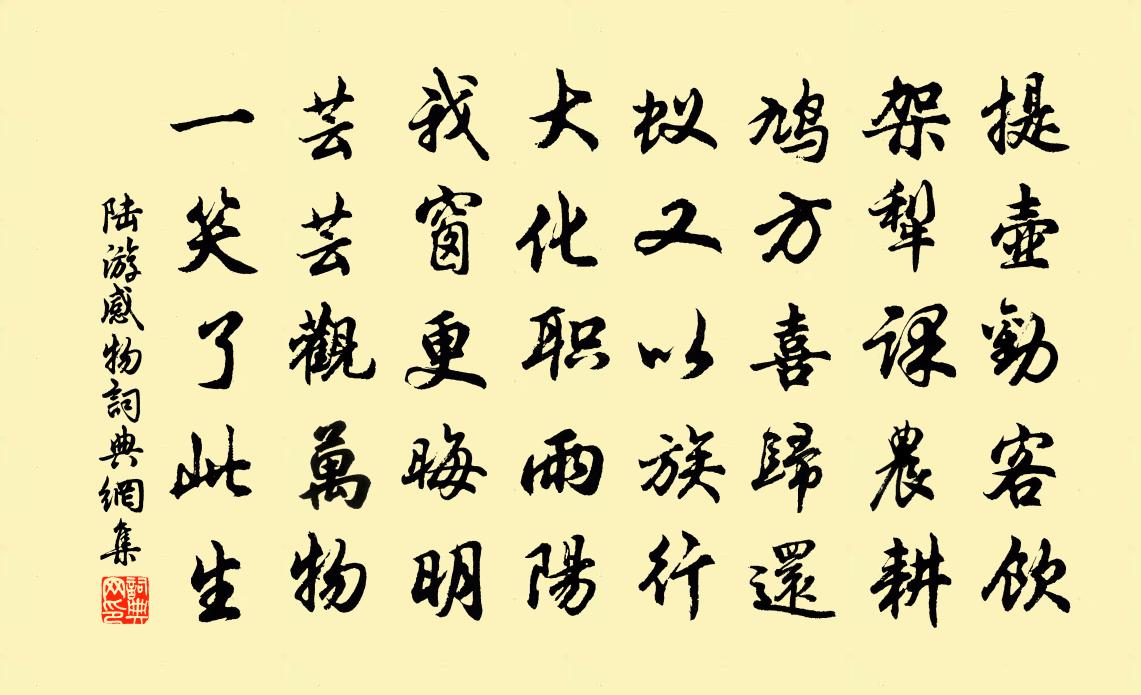 提壺勸客飲
架犁課農耕
鳩方喜歸還
蚁又以族行
大化职雨陽
我窗更晦明
芸芸觀萬物
一笑了此生
陸游感物詞典網集
詞典网印